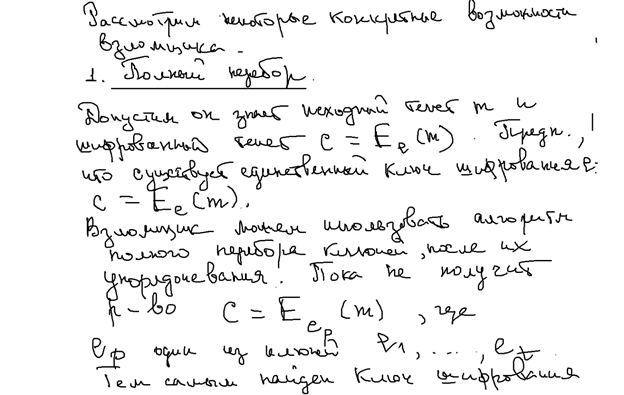 Рассмотрим некоторые конкретные возможности
взломщика.
1. Полный перебор.
Допустим он знает исходный текст m и
шифрованный текст c = E_e(m). Предп.,
что существует единственный ключ шифрования e:
c = E_e(m).
Взломщик может использовать алгоритм
полного перебора ключей, после их
упорядочевания. Пока не получит
р-во C = E_{e_p}(m), где
e_p один из ключей e_1, ..., e_t.
Тем самым найден ключ шифрования